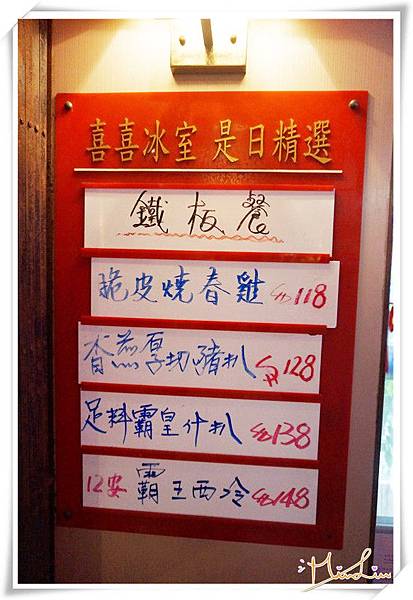 喜喜冰室 是日精選
鐵板餐
脆皮燒春雞 $118
香煎厚切豬扒 $128
足料霸皇什扒 $138
12安 霸王西冷 $148
MiaoLin